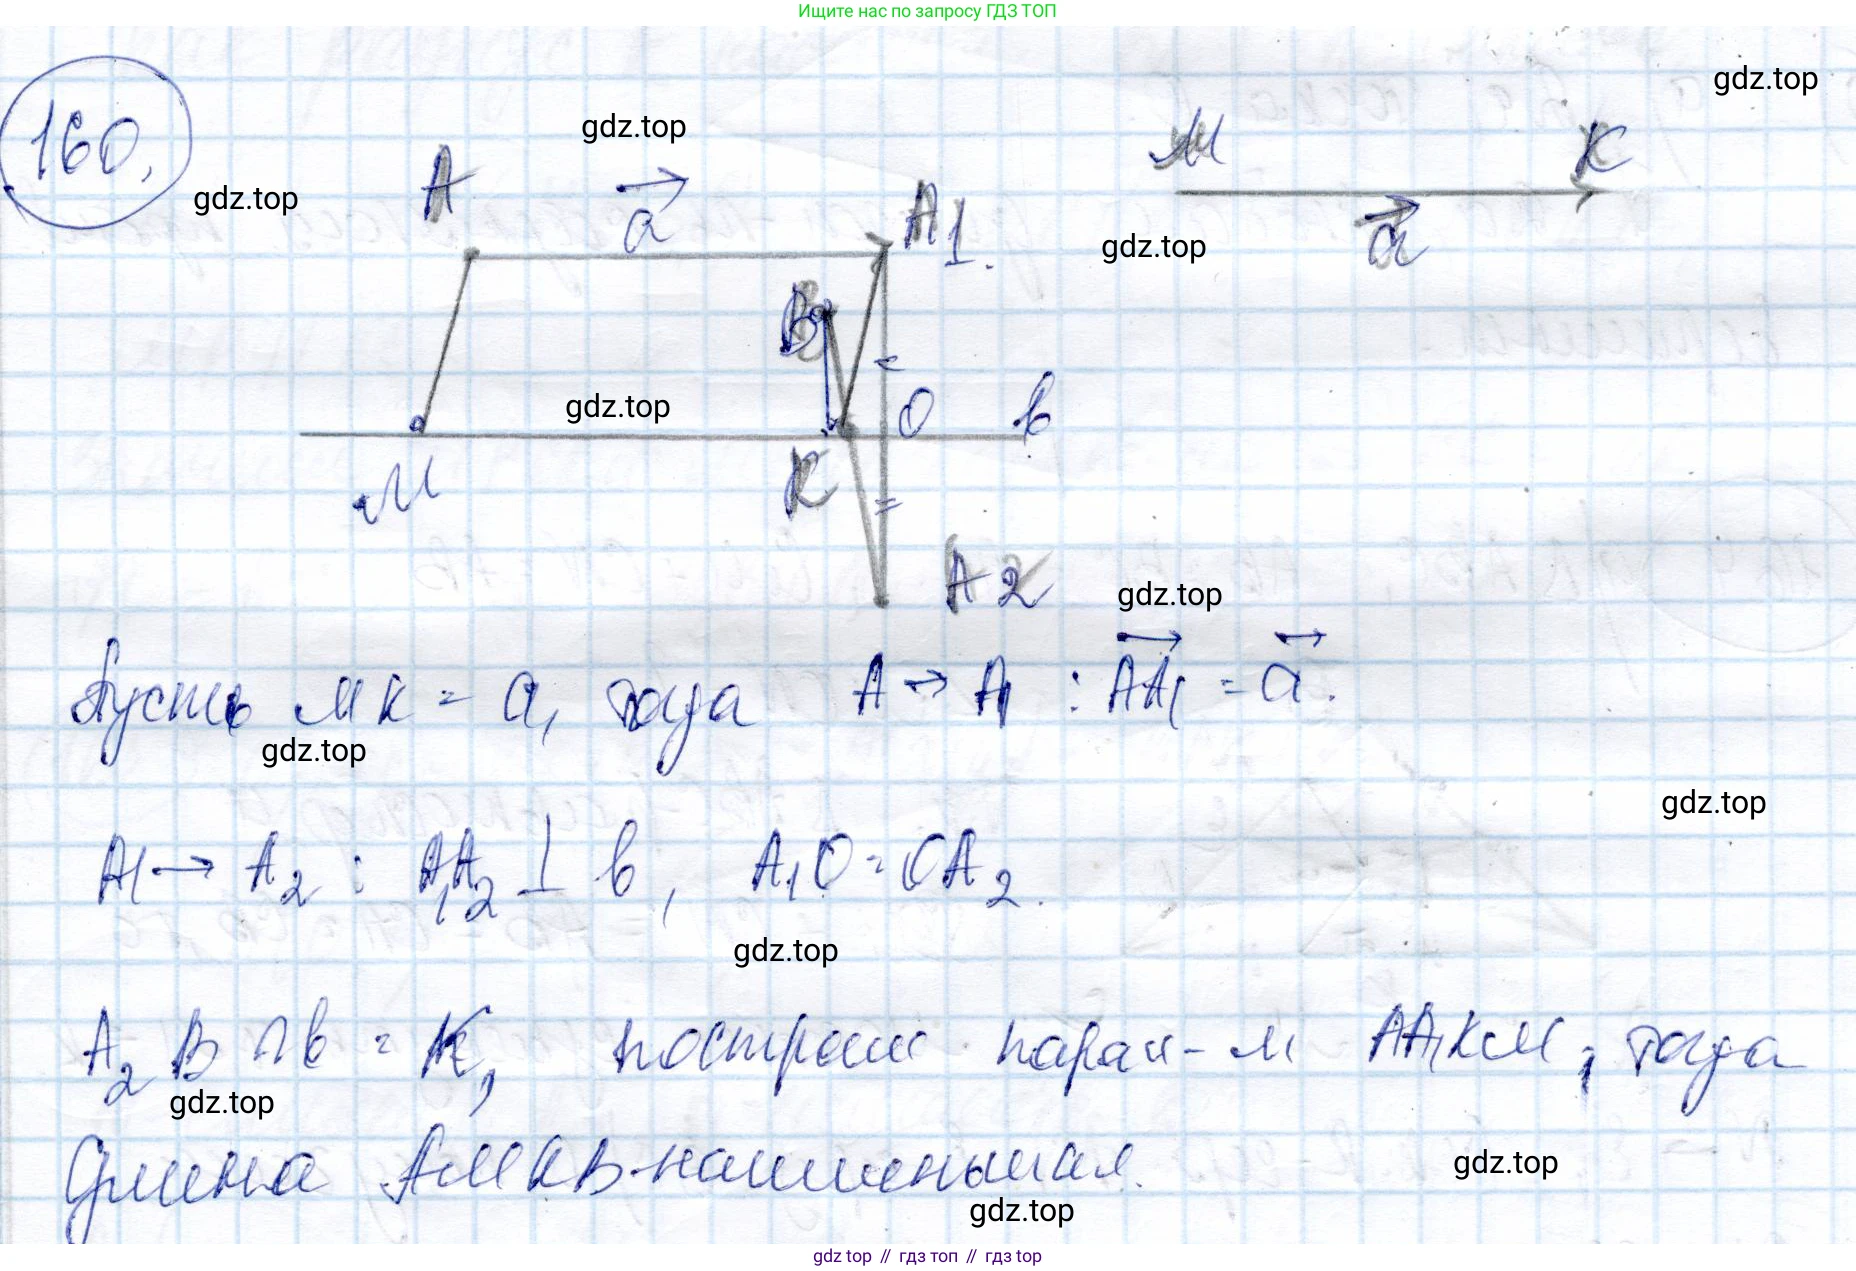 Ищите нас по запросу ГДЗ ТОП
gdz.top
160.
gdz.top
gdz.top
A
a
A1.
M
K
gdz.top
a
B
gdz.top
O
в
M
K
A2
gdz.top
Пусть MK = a, тогда A → A1 : AA1 = a.
gdz.top
gdz.top
A1 → A2 : A1A2 ⊥ в, A1O = OA2.
gdz.top
A2B ∩ в = K, построим парал-м AA1KM, тогда
gdz.top
длина AMKB-наименьшая.
gdz.top
gdz.top
gdz top // гдз топ // гдз top